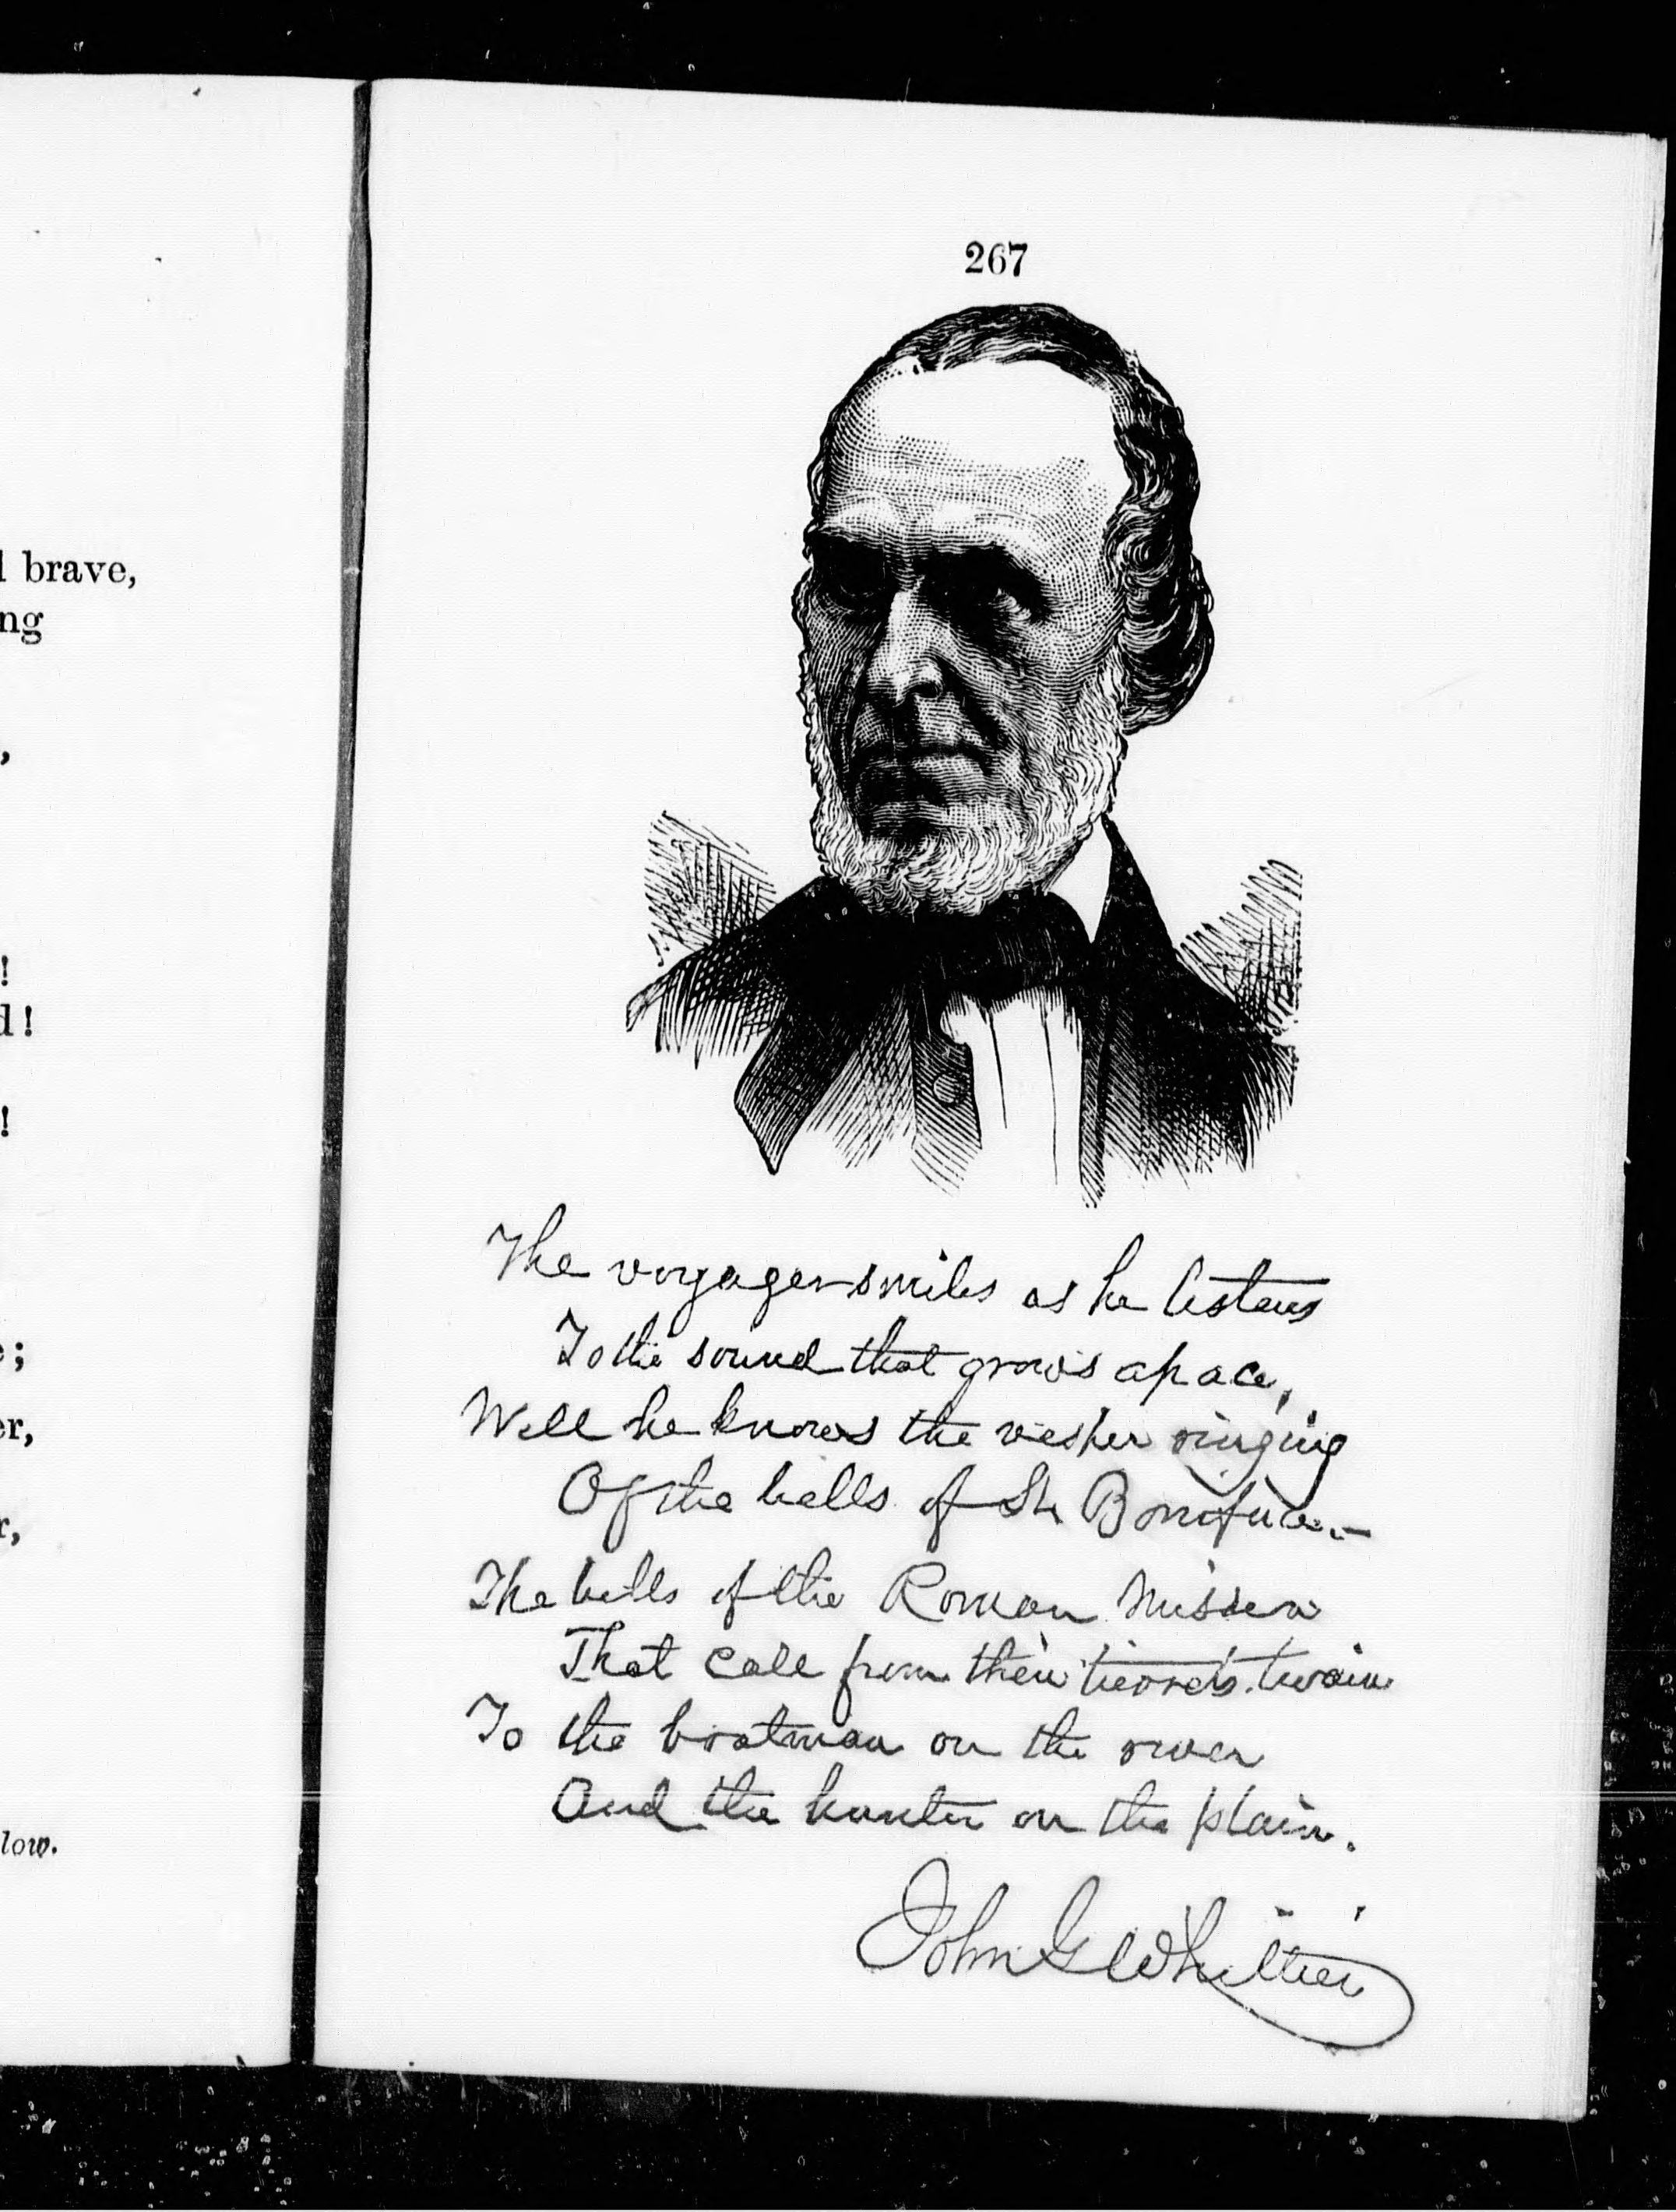 brave,
ng
,
!
d!
!
;
er,
r,
low.
267
The voyager smiles as he listens
To the sound that grows apace,
Well he knows the vesper ringing
Of the bells of St Boniface.—
The bells of the Roman Mission
That call from their turrets twain
To the boatman on the river
And the hunter on the plain.
John G Whittier